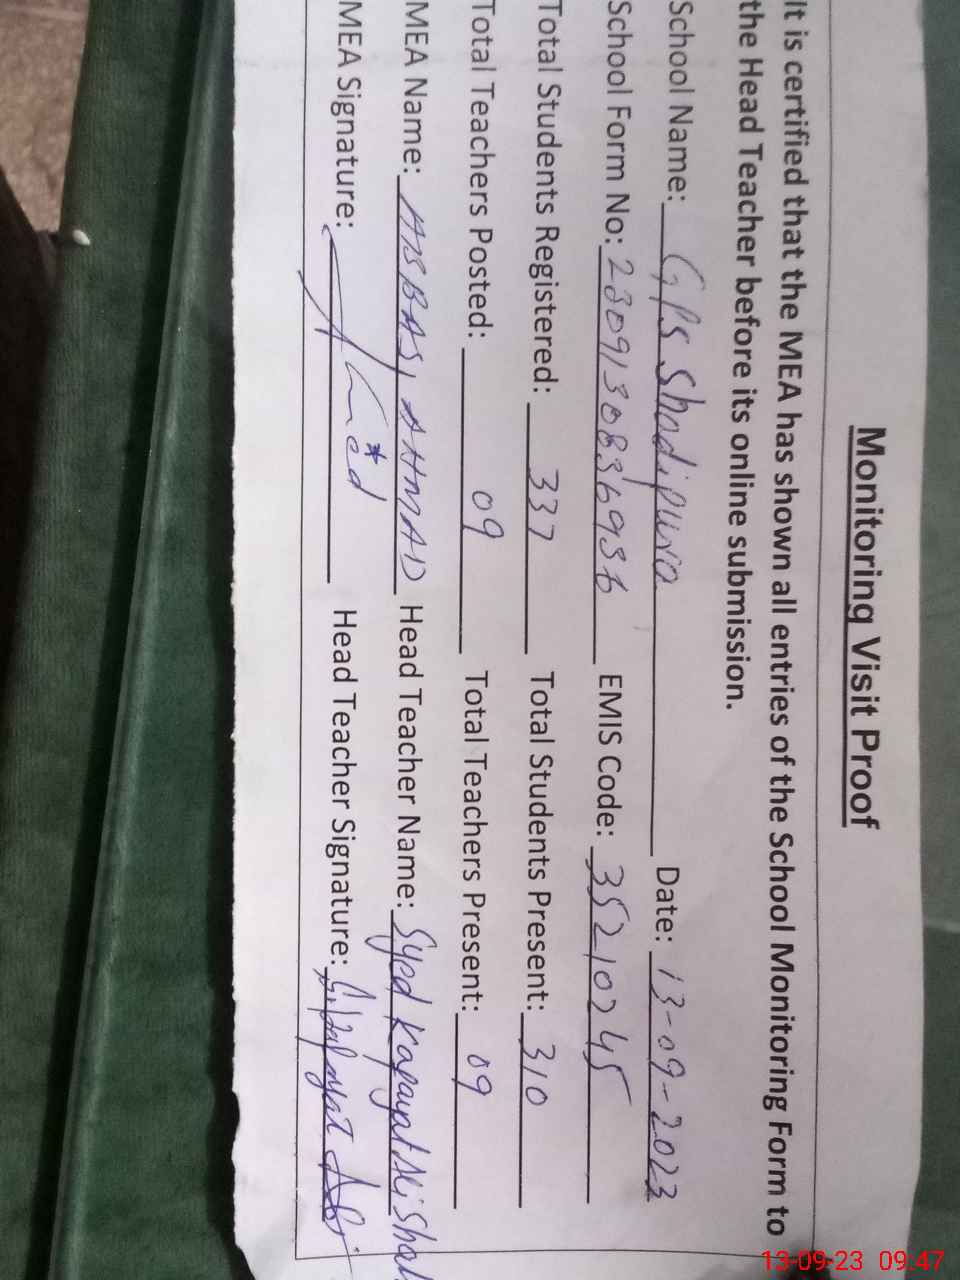 Monitoring Visit Proof
It is certified that the MEA has shown all entries of the School Monitoring Form to
the Head Teacher before its online submission.
School Name: GPS Shadipura Date: 13-09-2023
School Form No: 2309130836936 EMIS Code: 35210245
Total Students Registered: 337 Total Students Present: 310
Total Teachers Posted: 09 Total Teachers Present: 09
MEA Name: AHMAD Head Teacher Name: Syed Kafayat Ali Shah
MEA Signature: Head Teacher Signature:
13-09-23 09:47